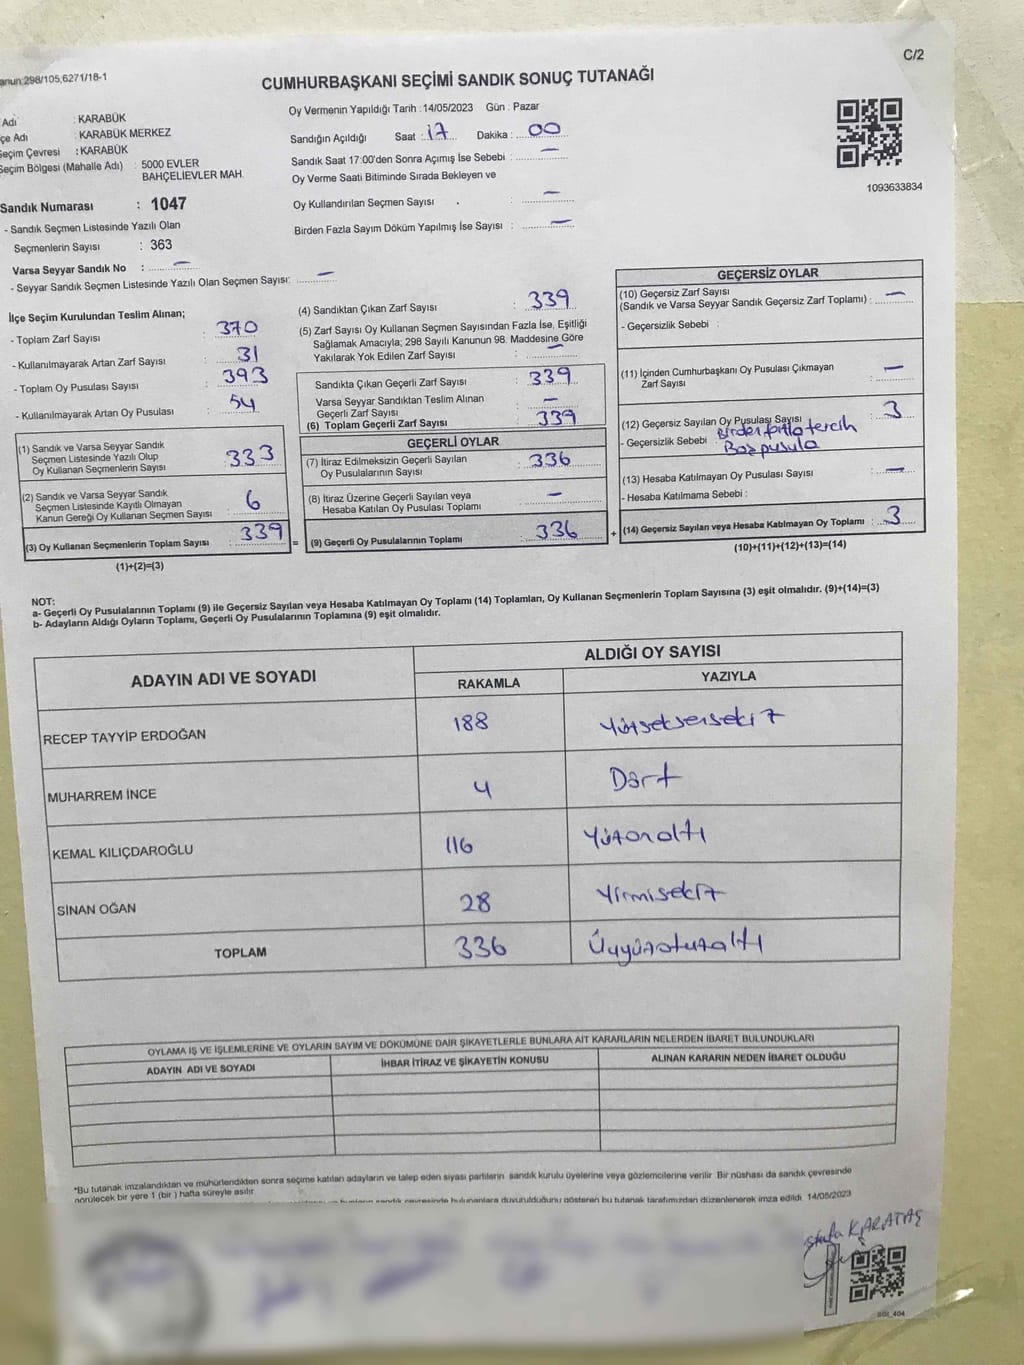 anun:298/105,6271/18-1
C/2
CUMHURBAŞKANI SEÇİMİ SANDIK SONUÇ TUTANAĞI
Adı : KARABÜK
çe Adı : KARABÜK MERKEZ
Seçim Çevresi : KARABÜK
Seçim Bölgesi (Mahalle Adı) : 5000 EVLER
BAHÇELİEVLER MAH.
Sandık Numarası : 1047
- Sandık Seçmen Listesinde Yazılı Olan
Seçmenlerin Sayısı : 363
Varsa Seyyar Sandık No : —
- Seyyar Sandık Seçmen Listesinde Yazılı Olan Seçmen Sayısı: —
Oy Vermenin Yapıldığı Tarih :14/05/2023 Gün : Pazar
Sandığın Açıldığı Saat : 17 Dakika : 00
Sandık Saat 17:00'den Sonra Açımış İse Sebebi : —
Oy Verme Saati Bitiminde Sırada Bekleyen ve
Oy Kullandırılan Seçmen Sayısı : —
Birden Fazla Sayım Döküm Yapılmış İse Sayısı : —
1093633834
İlçe Seçim Kurulundan Teslim Alınan;
- Toplam Zarf Sayısı : 370
- Kullanılmayarak Artan Zarf Sayısı : 31
- Toplam Oy Pusulası Sayısı : 393
- Kullanılmayarak Artan Oy Pusulası : 54
(1) Sandık ve Varsa Seyyar Sandık
Seçmen Listesinde Yazılı Olup
Oy Kullanan Seçmenlerin Sayısı : 333
(2) Sandık ve Varsa Seyyar Sandık
Seçmen Listesinde Kayıtlı Olmayan
Kanun Gereği Oy Kullanan Seçmen Sayısı : 6
(3) Oy Kullanan Seçmenlerin Toplam Sayısı : 339 =
(1)+(2)=(3)
(4) Sandıktan Çıkan Zarf Sayısı : 339
(5) Zarf Sayısı Oy Kullanan Seçmen Sayısından Fazla İse, Eşitliği
Sağlamak Amacıyla; 298 Sayılı Kanunun 98. Maddesine Göre
Yakılarak Yok Edilen Zarf Sayısı : —
Sandıkta Çıkan Geçerli Zarf Sayısı : 339
Varsa Seyyar Sandıktan Teslim Alınan
Geçerli Zarf Sayısı : —
(6) Toplam Geçerli Zarf Sayısı : 339
GEÇERLİ OYLAR
(7) İtiraz Edilmeksizin Geçerli Sayılan
Oy Pusulalarının Sayısı : 336
(8) İtiraz Üzerine Geçerli Sayılan veya
Hesaba Katılan Oy Pusulası Toplamı : —
(9) Geçerli Oy Pusulalarının Toplamı : 336 +
GEÇERSİZ OYLAR
(10) Geçersiz Zarf Sayısı
(Sandık ve Varsa Seyyar Sandık Geçersiz Zarf Toplamı) : —
- Geçersizlik Sebebi :
(11) İçinden Cumhurbaşkanı Oy Pusulası Çıkmayan
Zarf Sayısı : —
(12) Geçersiz Sayılan Oy Pusulası Sayısı : 3
- Geçersizlik Sebebi : Birden fazla tercih
Boş pusula
(13) Hesaba Katılmayan Oy Pusulası Sayısı : —
- Hesaba Katılmama Sebebi :
(14) Geçersiz Sayılan veya Hesaba Katılmayan Oy Toplamı : 3
(10)+(11)+(12)+(13)=(14)
NOT:
a- Geçerli Oy Pusulalarının Toplamı (9) ile Geçersiz Sayılan veya Hesaba Katılmayan Oy Toplamı (14) Toplamları, Oy Kullanan Seçmenlerin Toplam Sayısına (3) eşit olmalıdır. (9)+(14)=(3)
b- Adayların Aldığı Oyların Toplamı, Geçerli Oy Pusulalarının Toplamına (9) eşit olmalıdır.
ADAYIN ADI VE SOYADI
ALDIĞI OY SAYISI
RAKAMLA YAZIYLA
RECEP TAYYİP ERDOĞAN 188 Yüzseksensekiz
MUHARREM İNCE 4 Dört
KEMAL KILIÇDAROĞLU 116 Yüzonaltı
SİNAN OĞAN 28 Yirmisekiz
TOPLAM 336 Üçyüzotuzaltı
OYLAMA İŞ VE İŞLEMLERİNE VE OYLARIN SAYIM VE DÖKÜMÜNE DAİR ŞİKAYETLERLE BUNLARA AİT KARARLARIN NELERDEN İBARET BULUNDUKLARI
ADAYIN ADI VE SOYADI İHBAR İTİRAZ VE ŞİKAYETİN KONUSU ALINAN KARARIN NEDEN İBARET OLDUĞU
*Bu tutanak imzalandıktan ve mühürlendikten sonra seçime katılan adayların ve talep eden siyasi partilerin sandık kurulu üyelerine veya gözlemcilerine verilir. Bir nüshası da sandık çevresinde
görülecek bir yere 1 (bir ) hafta süreyle asılır.
sandık çevresinde bulunanlara duyurulduğunu gösteren bu tutanak tarafımızdan düzenlenerek imza edildi. 14/05/2023
stafa KARATAŞ